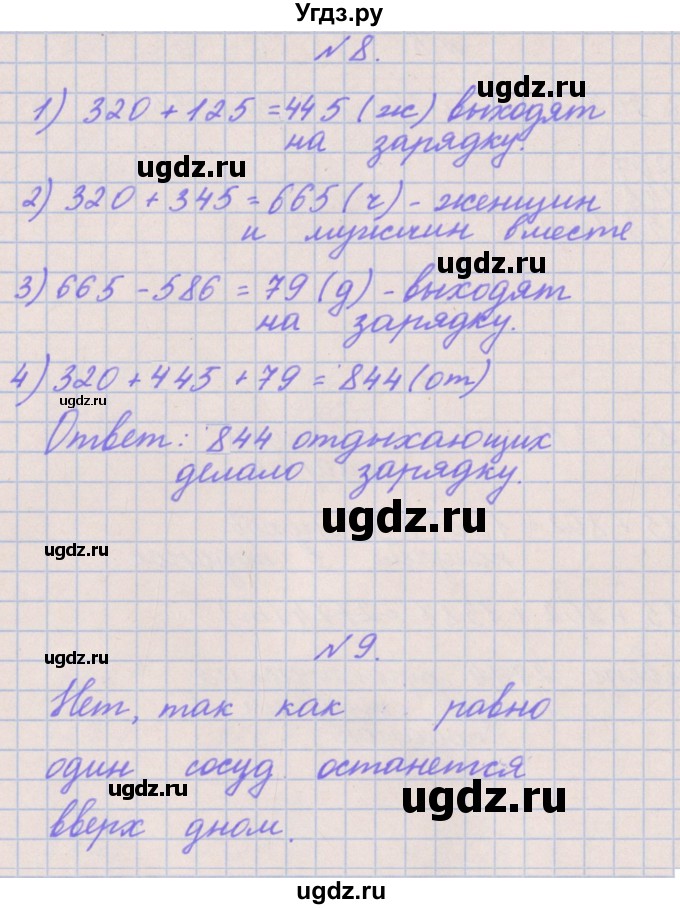 Угдз.ру
N 8.
ugdz.ru
1) 320 + 125 = 445 (ж) выходят
на зарядку.
ugdz.ru
2) 320 + 345 = 665 (ч) - женщин
и мужчин вместе
ugdz.ru
3) 665 - 586 = 79 (д) - выходят
на зарядку.
4) 320 + 445 + 79 = 844 (от)
ugdz.ru
Ответ: 844 отдыхающих
делало зарядку.
ugdz.ru
ugdz.ru
N 9.
ugdz.ru
Нет, так как равно
один сосуд останется
ugdz.ru
ugdz.ru
вверх дном.
ugdz.ru